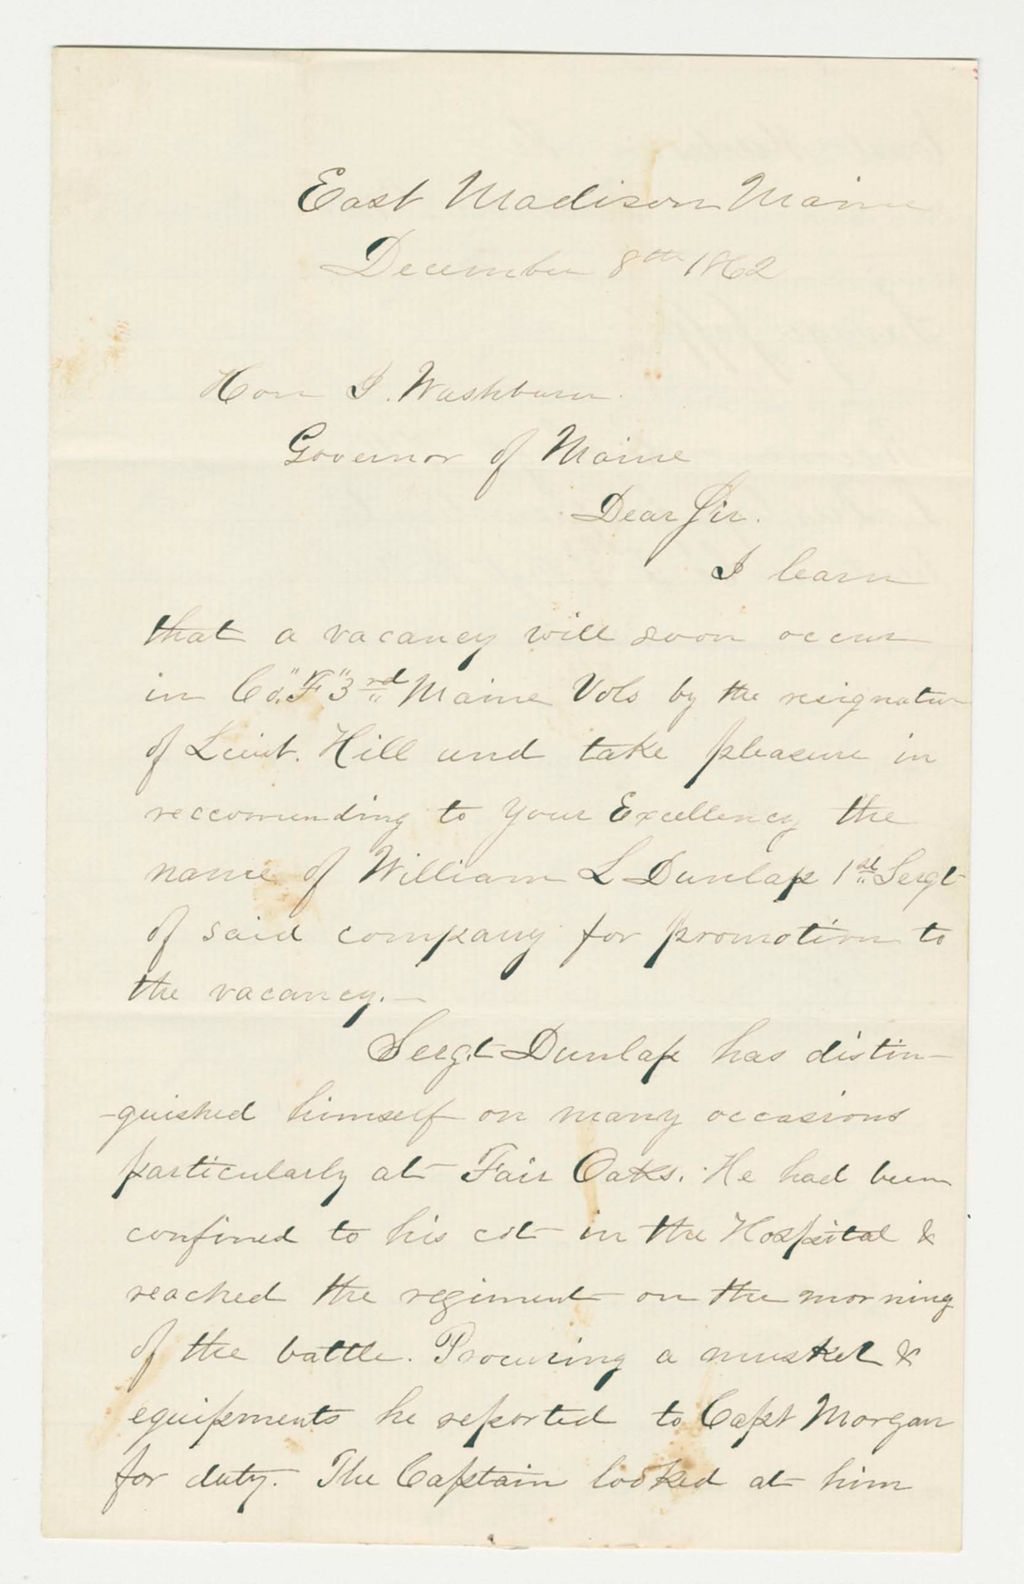 East Madison Maine
December 8th 1862
Hon I. Washburn.
Governor of Maine
Dear Sir.
I learn
that a vacancy will soon occur
in Co. "F" 3rd Maine Vols by the resignation
of Lieut. Hill and take pleasure in
reccomending to your Excellency the
name of William L Dunlap 1st Sergt
of said company for promotion to
the vacancy.—
Sergt Dunlap has distin-
-guished himself on many occasions
particularly at Fair Oaks. He had been
confined to his cot in the Hospital &
reached the regiment on the morning
of the battle. Procuring a musket &
equipments he reported to Capt Morgan
for duty. The Captain looked at him